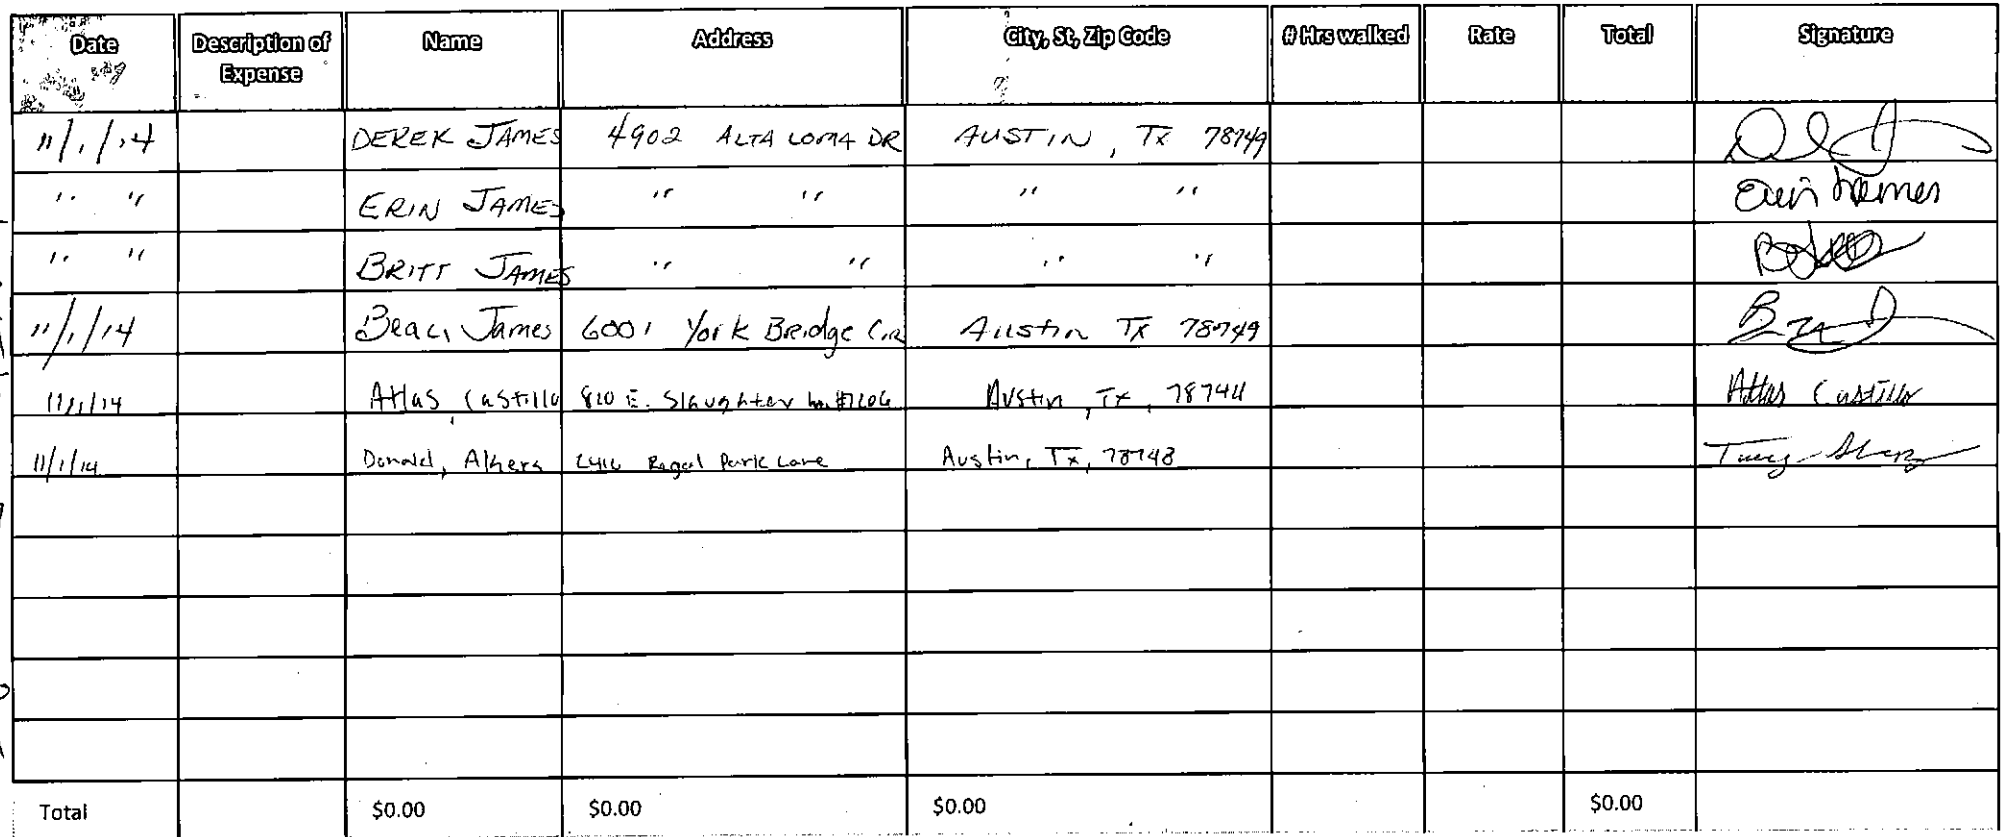 Date Description of Expense Name Address City, St, Zip Code # Hrs walked Rate Total Signature
11/1/14 DEREK JAMES 4902 ALTA LOMA DR AUSTIN, TX 78749
" " ERIN JAMES " " " " Erin James
" " BRITT JAMES " " " "
11/1/14 James 6001 York Bridge Cir Austin TX 78749
11/1/14 Atlas, Castillo 810 E. Slaughter Ln. Austin, TX, 78744 Atlas Castillo
11/1/14 Donald, Park Lane Austin, Tx, 78748
Total $0.00 $0.00 $0.00 $0.00